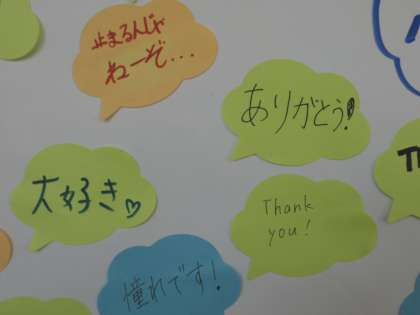 止まるんじゃ
ねーぞ...
ありがとう!
大好き♡
Thank
you!
憧れです!